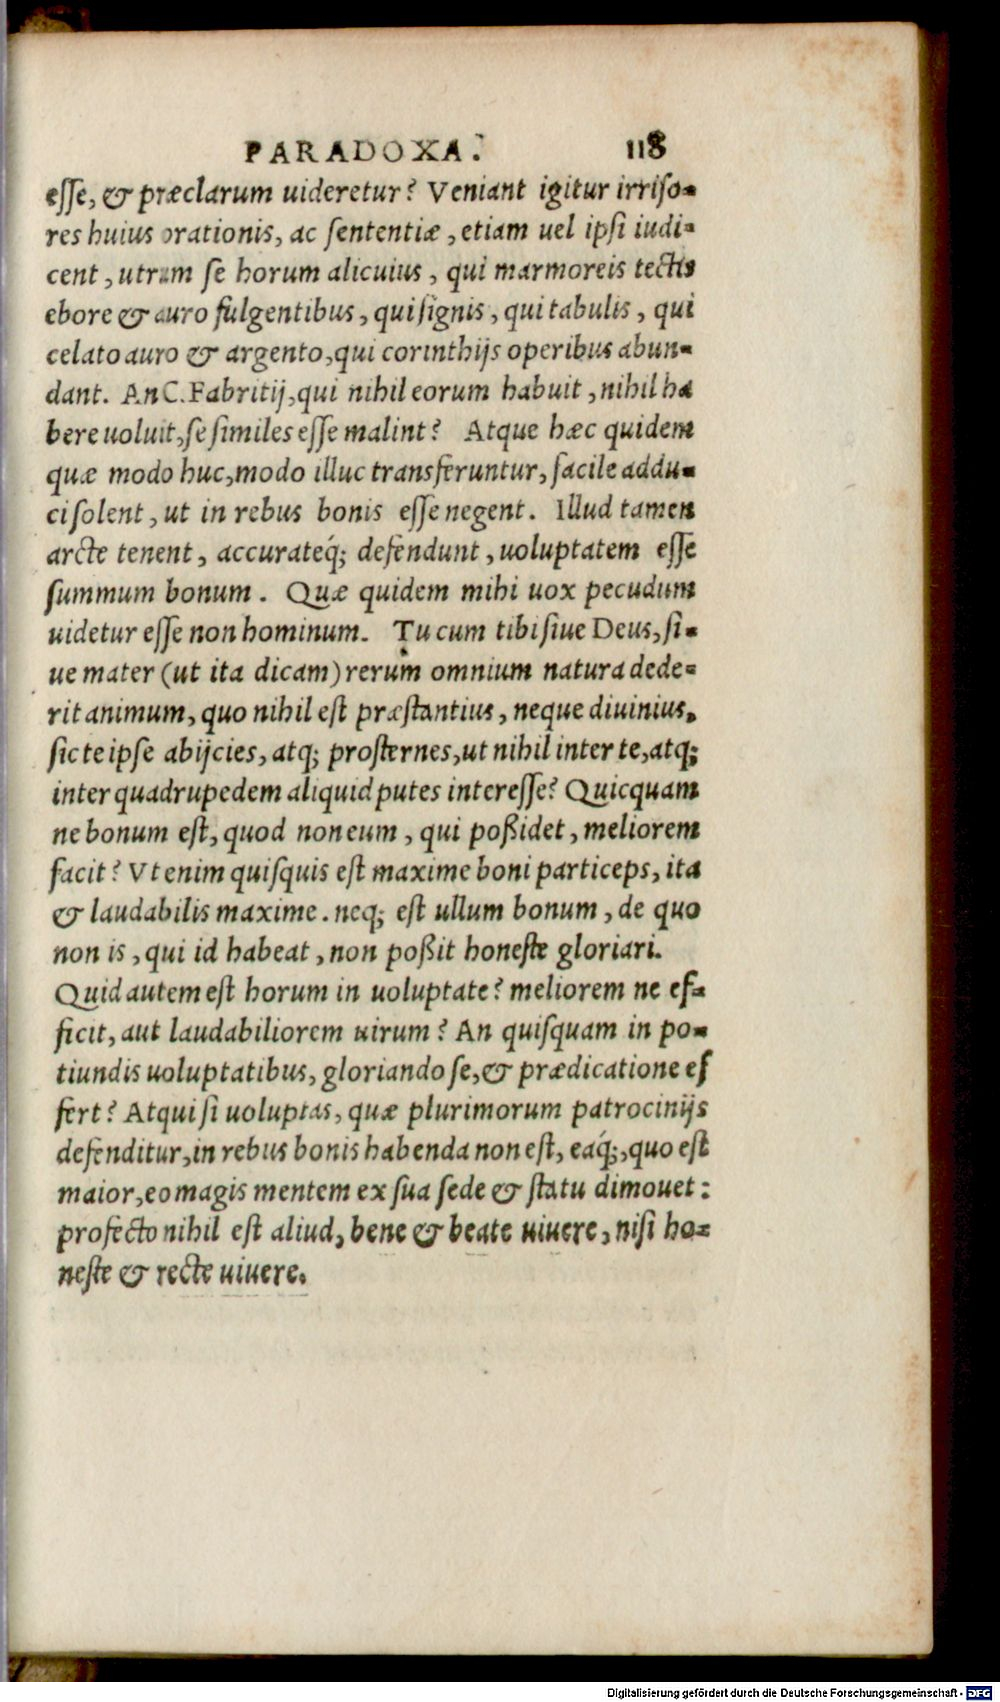 PARADOXA. 118
eſſe, & præclarum uideretur? Veniant igitur irriſo-
res huius orationis, ac ſententiæ, etiam uel ipſi iudi-
cent, utrum ſe horum alicuius, qui marmoreis tectis
ebore & auro fulgentibus, qui ſignis, qui tabulis, qui
celato auro & argento, qui corinthijs operibus abun-
dant. An C. Fabritij, qui nihil eorum habuit, nihil ha
bere uoluit, ſe ſimiles eſſe malint? Atque hæc quidem
quæ modo huc, modo illuc transferuntur, facile addu-
ci ſolent, ut in rebus bonis eſſe negent. Illud tamen
arcte tenent, accurateq́; defendunt, uoluptatem eſſe
ſummum bonum. Quæ quidem mihi uox pecudum
uidetur eſſe non hominum. Tu cum tibi ſiue Deus, ſi-
ue mater (ut ita dicam) rerum omnium natura dede-
rit animum, quo nihil eſt præſtantius, neque diuinius,
ſic te ipſe abijcies, atq; proſternes, ut nihil inter te, atq;
inter quadrupedem aliquid putes intereſſe? Quicquam
ne bonum eſt, quod non eum, qui poßidet, meliorem
facit? Vt enim quiſquis eſt maxime boni particeps, ita
& laudabilis maxime. neq; eſt ullum bonum, de quo
non is, qui id habeat, non poßit honeſte gloriari.
Quid autem eſt horum in uoluptate? meliorem ne ef-
ficit, aut laudabiliorem uirum? An quiſquam in po-
tiundis uoluptatibus, gloriando ſe, & prædicatione ef
fert? Atqui ſi uoluptas, quæ plurimorum patrocinijs
defenditur, in rebus bonis habenda non eſt, eaq́;, quo eſt
maior, eo magis mentem ex ſua ſede & ſtatu dimouet:
profecto nihil eſt aliud, bene & beate uiuere, niſi ho-
neſte & recte uiuere.
Digitalisierung gefördert durch die Deutsche Forschungsgemeinschaft - DFG